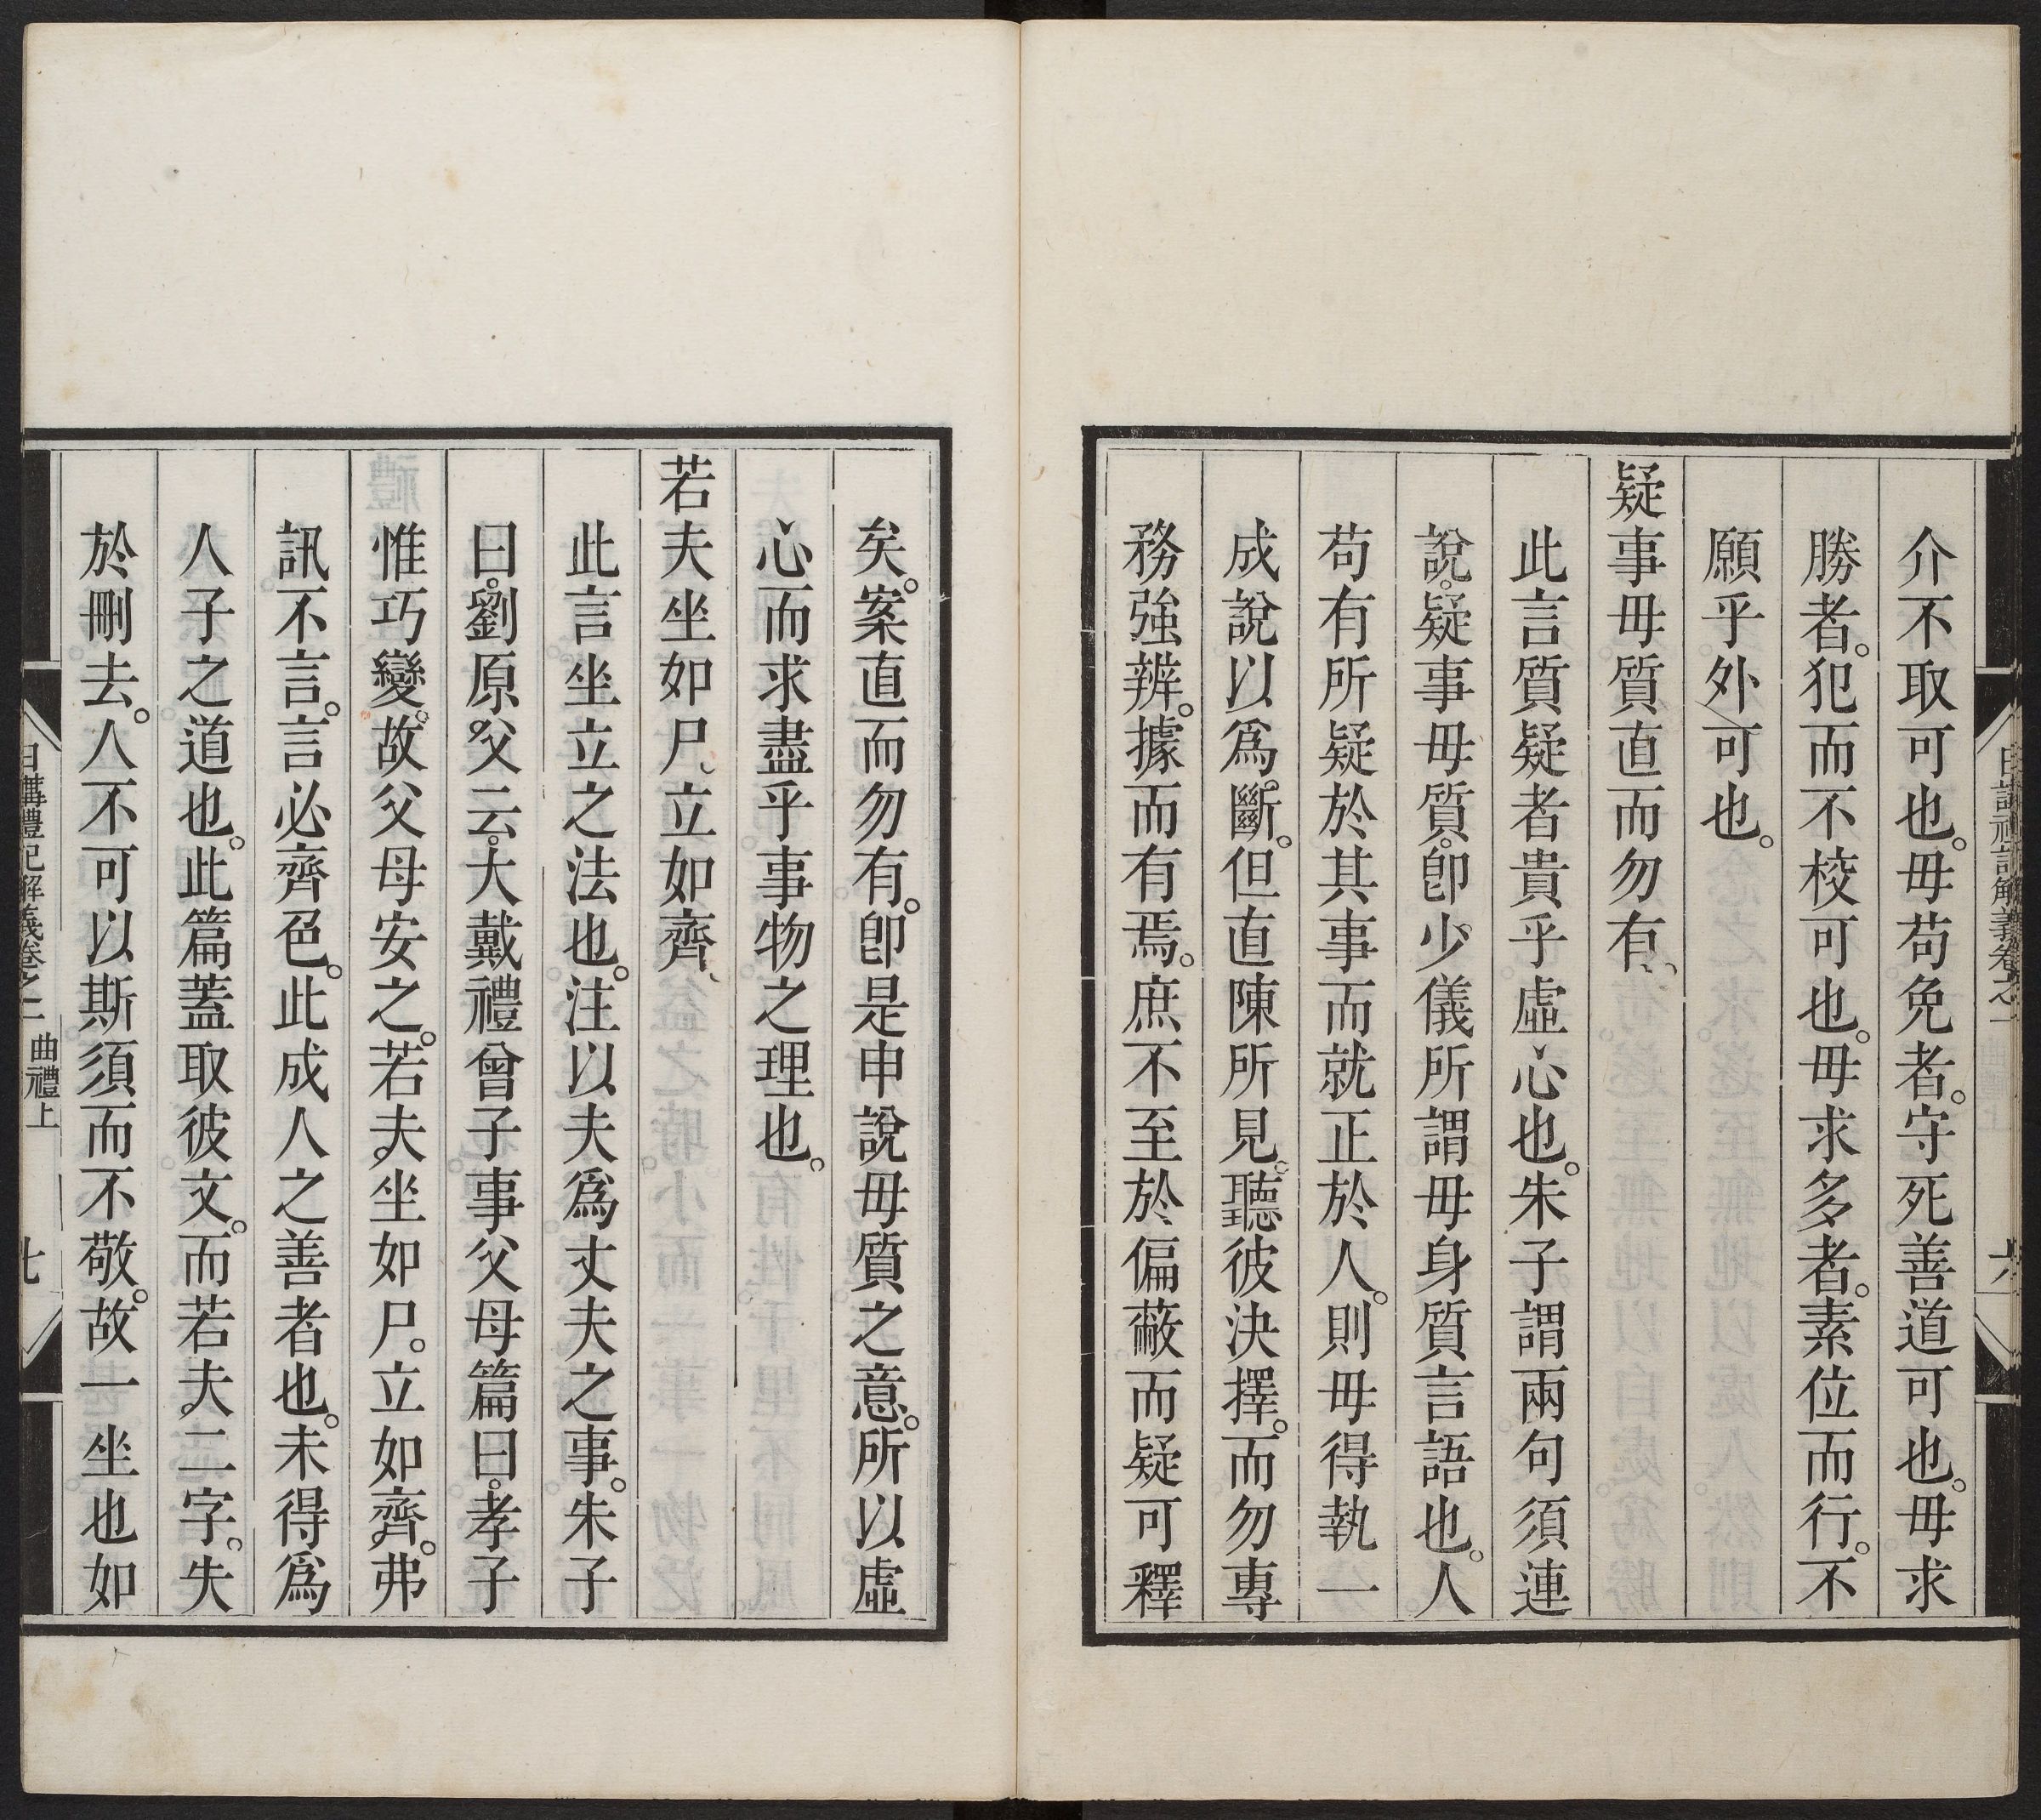 日講禮記解義卷之一
六
介不取可也。毋苟免者。守死善道可也。毋求
勝者。犯而不校可也。毋求多者。素位而行。不
願乎外可也。
疑事毋質直而勿有、
此言質疑者貴乎虛心也。朱子謂兩句須連
說。疑事毋質。卽少儀所謂毋身質言語也。人
苟有所疑於其事而就正於人。則毋得執一
成說以爲斷。但直陳所見。聽彼決擇。而勿專
務強辨。據而有焉。庶不至於偏蔽而疑可釋
矣。案直而勿有。卽是申說毋質之意。所以虛
心而求盡乎事物之理也。
若夫坐如尸、立如齊、
此言坐立之法也。注以夫爲丈夫之事。朱子
曰。劉原父云。大戴禮曾子事父母篇曰。孝子
惟巧變。故父母安之。若夫坐如尸。立如齊。弗
訊不言。言必齊色。此成人之善者也。未得爲
人子之道也。此篇蓋取彼文。而若夫二字。失
於刪去。人不可以斯須而不敬。故一坐也如
日講禮記解義卷之一 曲禮上
七